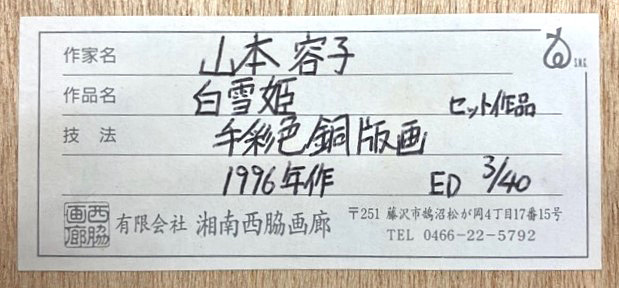 作家名 山本容子
作品名 白雪姫 セット作品
技法 手彩色銅版画
1996年作 ED 3/40
西脇画廊 有限会社 湘南西脇画廊
〒251 藤沢市鵠沼松が岡4丁目17番15号
TEL 0466-22-5792